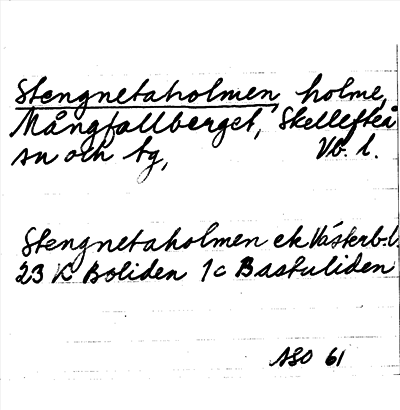 Stengnetaholmen, holme,
Mångfallberget, Skellefteå
sn och tg, Vb. l.
Stengnetaholmen ek Västerb. l.
23 K Boliden 1c Bastuliden
ASO 61